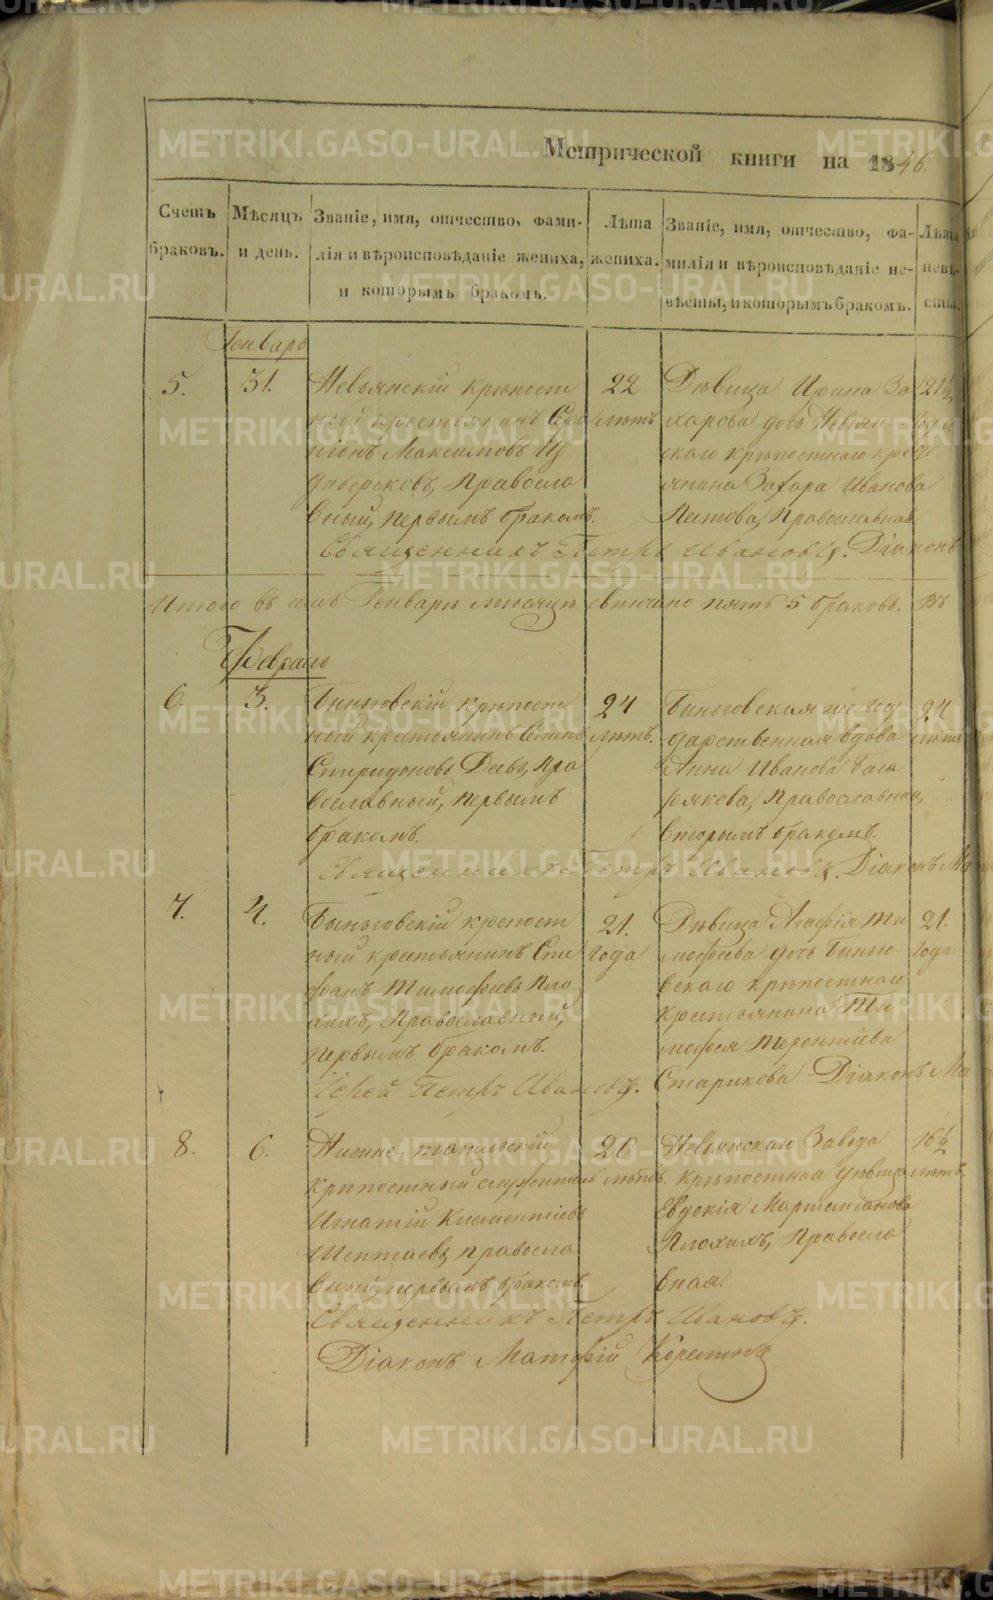 METRIKI.GASO-URAL.RU
Метрической книги на 1846.
Счетъ браковъ.
Мѣсяцъ и день.
Званіе, имя, отчество, фами-
лія и вѣроисповѣданіе жениха,
и которымъ бракомъ.
Лѣта жениха.
Званіе, имя, отчество, фа-
милія и вѣроисповѣданіе не-
вѣсты, и которымъ бракомъ.
Лѣта невѣ-
сты.
Генварь
5. 31.
Невьянскій крѣпост
ный крестьянинъ
піонъ Максимовъ
Правосла
вный, первымъ бракомъ.
22
лѣтъ
Дѣвица Ирина За
харова дочь Невьян
скаго крѣпостнаго крес
янина Захара Иванова
Православная
21 ½
Священникъ Петръ Ивановъ. Діаконъ
Итого въ семъ Генварѣ мѣсяцѣ свѣнчано пять 5 браковъ. Въ
Февраль
6. 3.
Быньговскій крѣпост
ный крестьянинъ
Спиридоновъ Деевъ, Пра
вославный, первымъ
бракомъ.
24
лѣтъ.
Быньговская госу
дарственная вдова
Анна Иванова
Православная,
вторымъ бракомъ.
24
лѣтъ
Священникъ Петръ Ивановъ. Діаконъ Ма
7. 4.
Быньговскій крепост
ный крестьянинъ Сте
фанъ Тимофеевъ Пло
хихъ, Православный,
первымъ бракомъ.
21.
года
Дѣвица Агафія Ти
мофеева дочь Быньго-
вскаго крѣпостнаго
крестьянина Ти
мофея Терентіева
Старикова
21.
года
Іерей Петръ Ивановъ. Діаконъ Ма
8. 6.
Нижне-тагильскій
крѣпостный служитель
Игнатій Климентіевъ
Шептаевъ, Правосла
вный, первымъ бракомъ.
20
лѣтъ.
Невьянскаго Завода
крѣпостная дѣвица
Евдокія Мартеміанова
Плохихъ, Правосла
вная.
16 ½
лѣтъ.
Священникъ Петръ Ивановъ.
Діаконъ Матфій